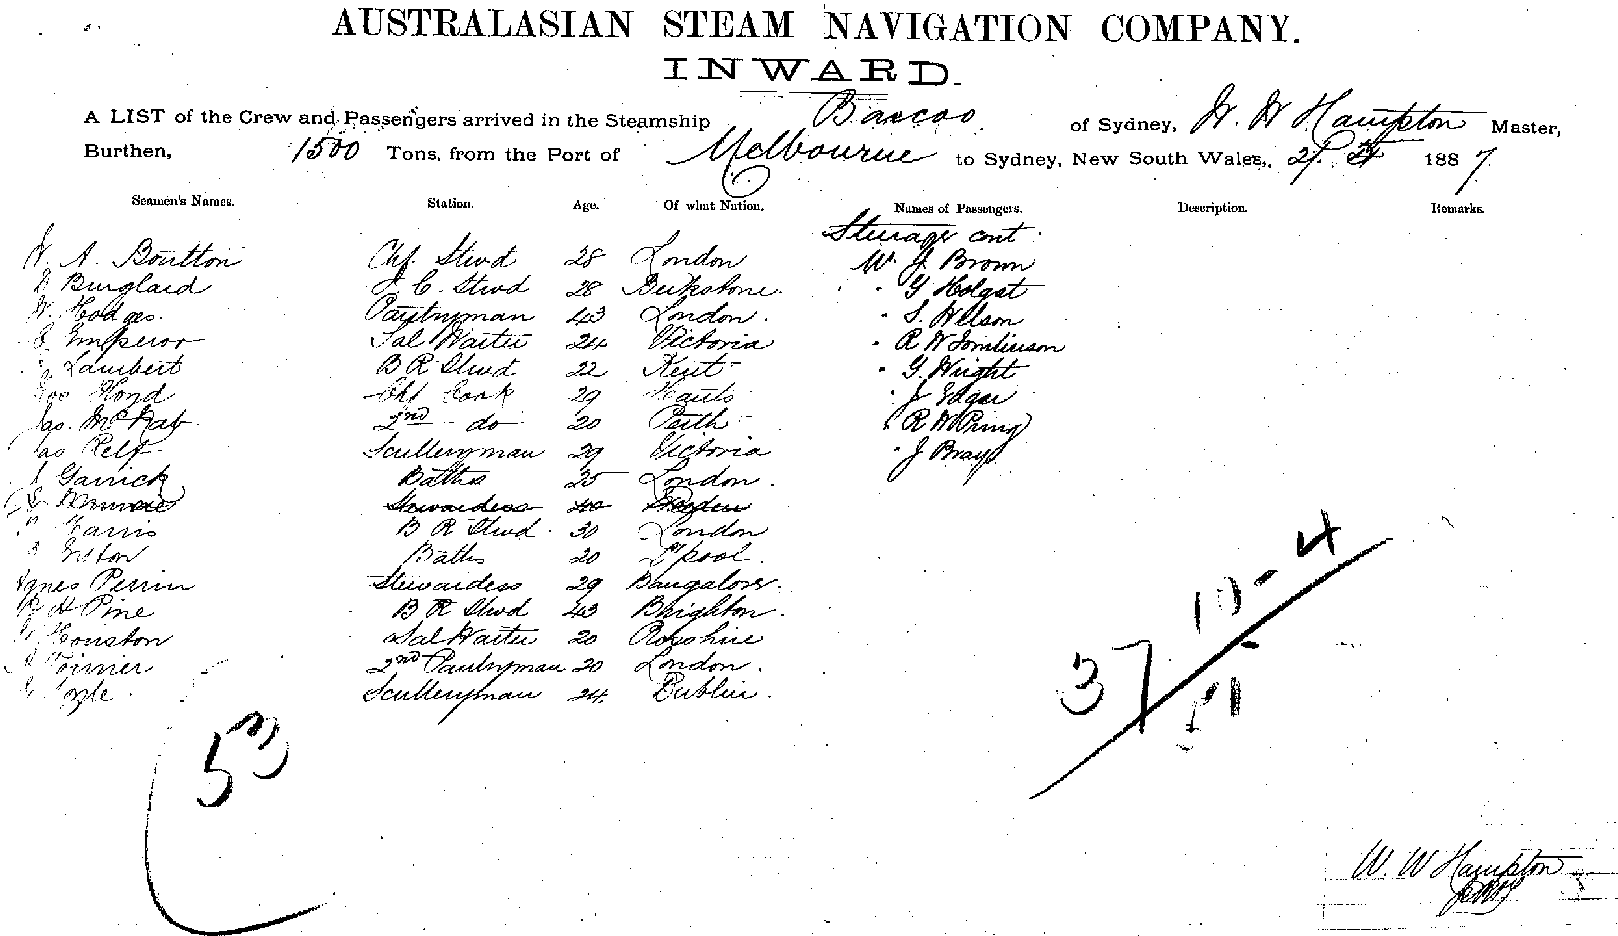 AUSTRALASIAN STEAM NAVIGATION COMPANY.
INWARD.
A LIST of the Crew and Passengers arrived in the Steamship Barcoo of Sydney, W. W Hampton Master,
Burthen, 1500 Tons, from the Port of Melbourne to Sydney, New South Wales, 1887.
Seamen's Names. Station. Age. Of what Nation. Names of Passengers. Description. Remarks.
Steerage cont
A. Boutton Chf. Stwd 28 London Mr. J. Brown
Burglaid F. C. Stwd 28 " G Holgat
W. Hodges. Pantryman 43 London. " S. Wilson
Emperor Sal Waiter 24 Victoria " R W Tomlinson
Lambert B R Stwd 22 Kent " G. Wright
Hond Chf Cook 29 Hants " J Edgar
Jas. McNab 2nd do 20 Perth " R W Pring
Jas Relf Sculleryman 29 Victoria " J Bray
Garrick Baths 25 London.
Stewardess 40
Harris B R Stwd. 30 London
Baths 20 L'pool.
Agnes Perrin Stewardess 29 Bangalore.
H Pine B R Stwd 43 Brighton.
Houston Sal Waiter 20
2nd Pantryman 20 London.
Sculleryman 24 Dublin.
10 - 4
37
51
53
W. W Hampton